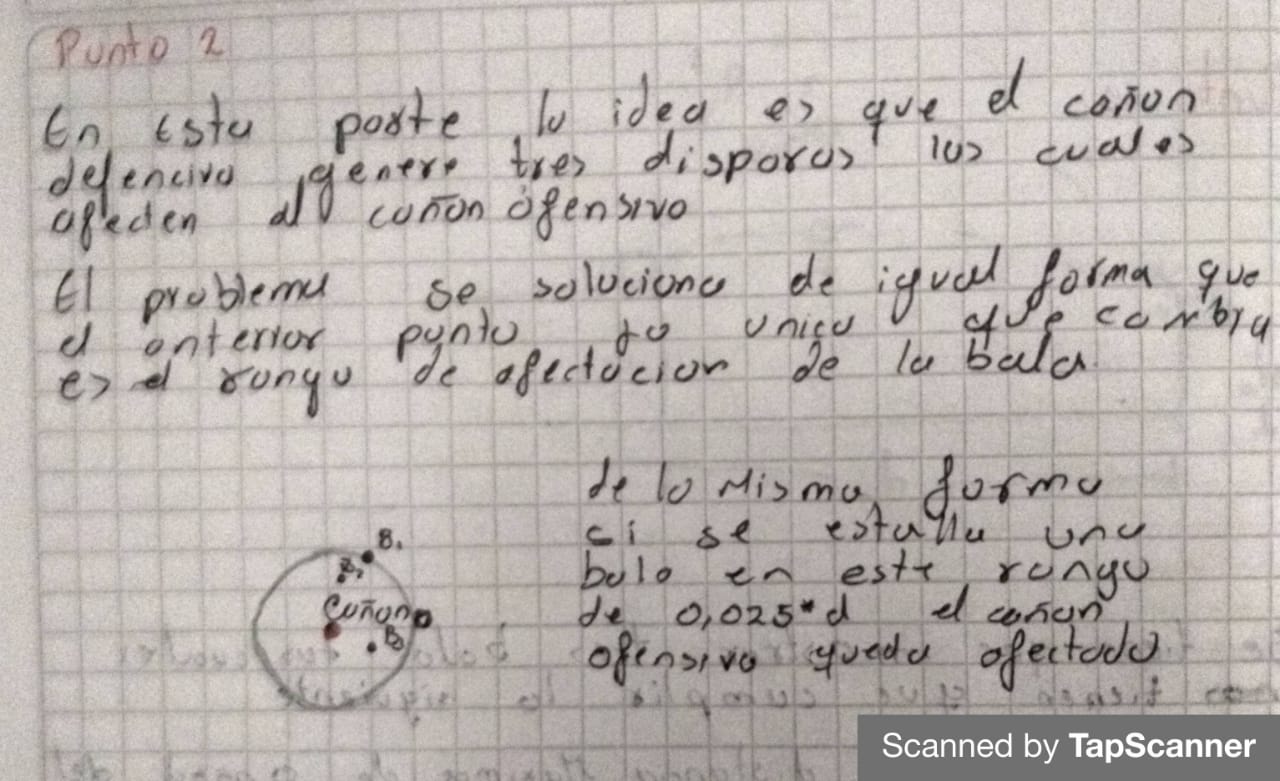 Punto 2
En esta parte la idea es que el cañon
defencivo genere tres disparos los cuales
afecten al cañon ofensivo
El problema se soluciona de igual forma que
el anterior punto lo unico que cambia
es el rango de afectacion de la bala.
de la misma forma
si se estalla una
bala en este rango
de 0,025*d el cañon
ofensivo queda afectado
B.
B,
Cañon
B
Scanned by TapScanner